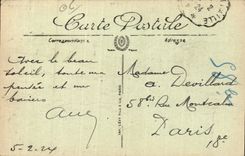 Carte Postale
Correspondance
Adresse
Avec le beau
soleil, toute ma
pensée et mes
baisers
5-2-24
Madame
a. Devillard
58 bis Rue Montcalm
Paris